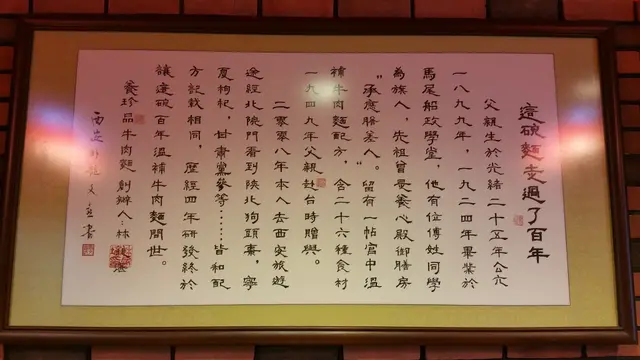 這碗麵走過了百年
父親生於光緒二十五年公元
一八九九年,一九二四年畢業於
馬尾船政學堂,他有位傅姓同學
為旗人,先祖曾是養心殿御膳房
"承應膳差人。留有一帖宮中溫
補牛肉麵配方,含二十六種食材
一九四九年父親赴台時贈與。
二零零八年本人去西安旅遊
途經北院門看到陝北狗頭棗,寧
夏枸杞,甘肅黨蔘等……皆和配
方記載相同,歷經四年研發終於
讓這碗百年溫補牛肉麵問世。
養珍品牛肉麵 創辦人:林
西安 書